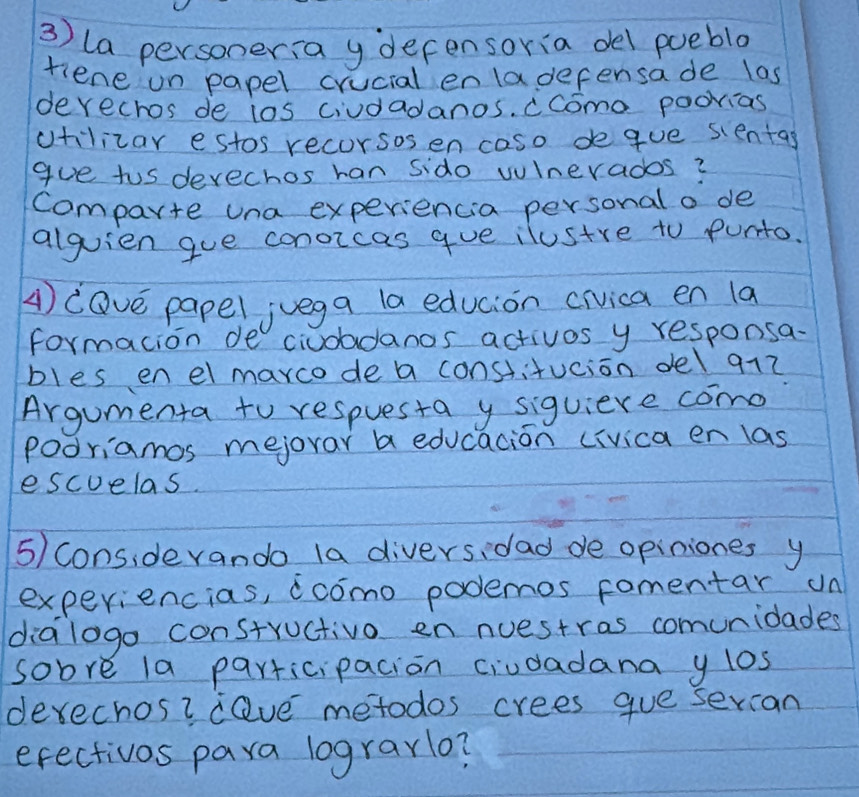 3) La personería y defensoría del pueblo
tiene un papel crucial en la defensa de los
derechos de los ciudadanos. ¿Cómo podrías
utilizar estos recursos en caso de que sientas
que tus derechos han sido vulnerados?
Comparte una experiencia personal o de
alguien que conozcas que ilustre tu punto.
4) ¿Qué papel juega la edución cívica en la
formación de ciudadanos activos y responsa-
bles en el marco de la constitución del 91?
Argumenta tu respuesta y siguiere cómo
podríamos mejorar la educación cívica en las
escuelas.
5) Considerando la diversidad de opiniones y
experiencias, ¿cómo podemos fomentar un
diálogo constructivo en nuestras comunidades
sobre la participación ciudadana y los
derechos? ¿Qué métodos crees que serían
efectivos para lograrlo?